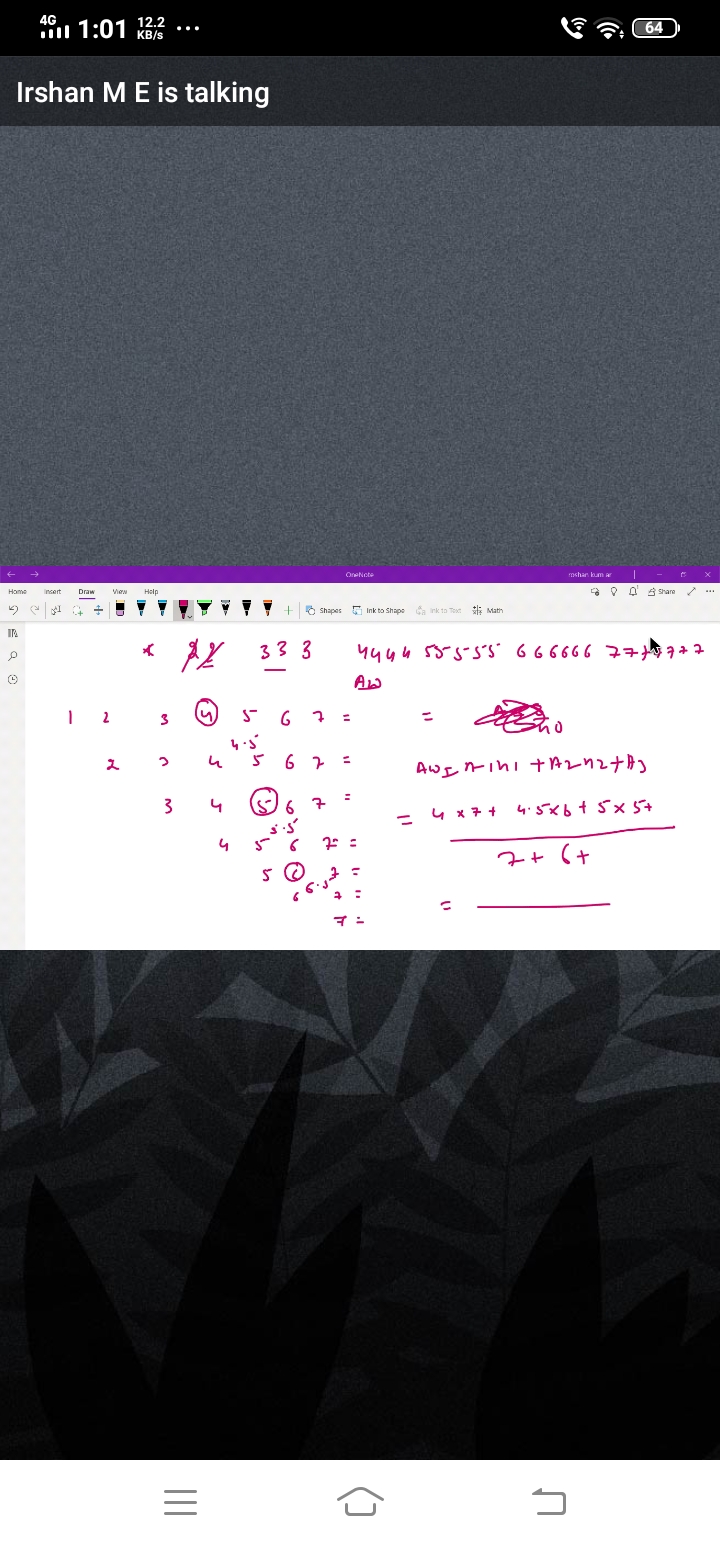 4G 1:01 12.2 KB/s ... 64
Irshan M E is talking
OneNote roshan kum ar
Home Insert Draw View Help Share
Shapes Ink to Shape Ink to Text Math
3 3 3 4 4 4 4 5 5 5 5 5 6 6 6 6 6 6 7 7 7 7 7 7 7
1 2 3 4 5 6 7 = =
4.5
2 3 4 5 6 7 =
3 4 5 6 7 = = 4 x 7 + 4.5 x 6 + 5 x 5 +
7 + 6 +
5.5
4 5 6 7 =
5 6 7 =
6.5
6 7 = =
7 =